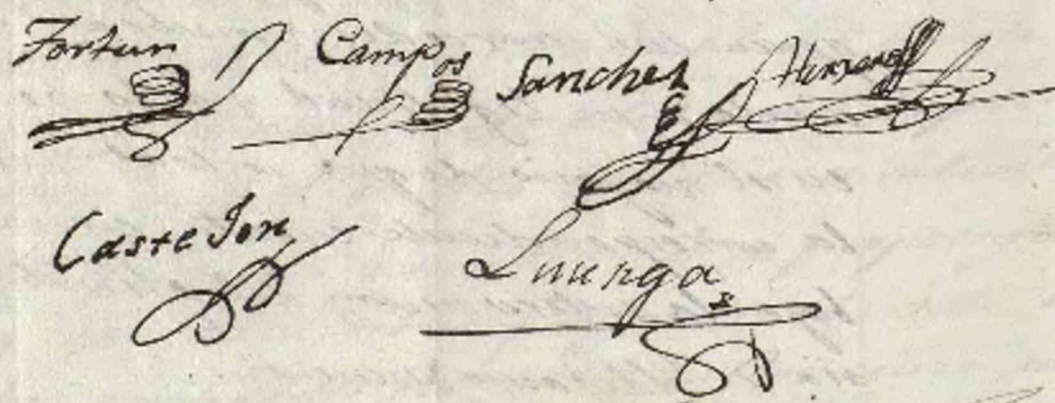 Fortun Campos Sanchez Herrero
Castejon Luenga